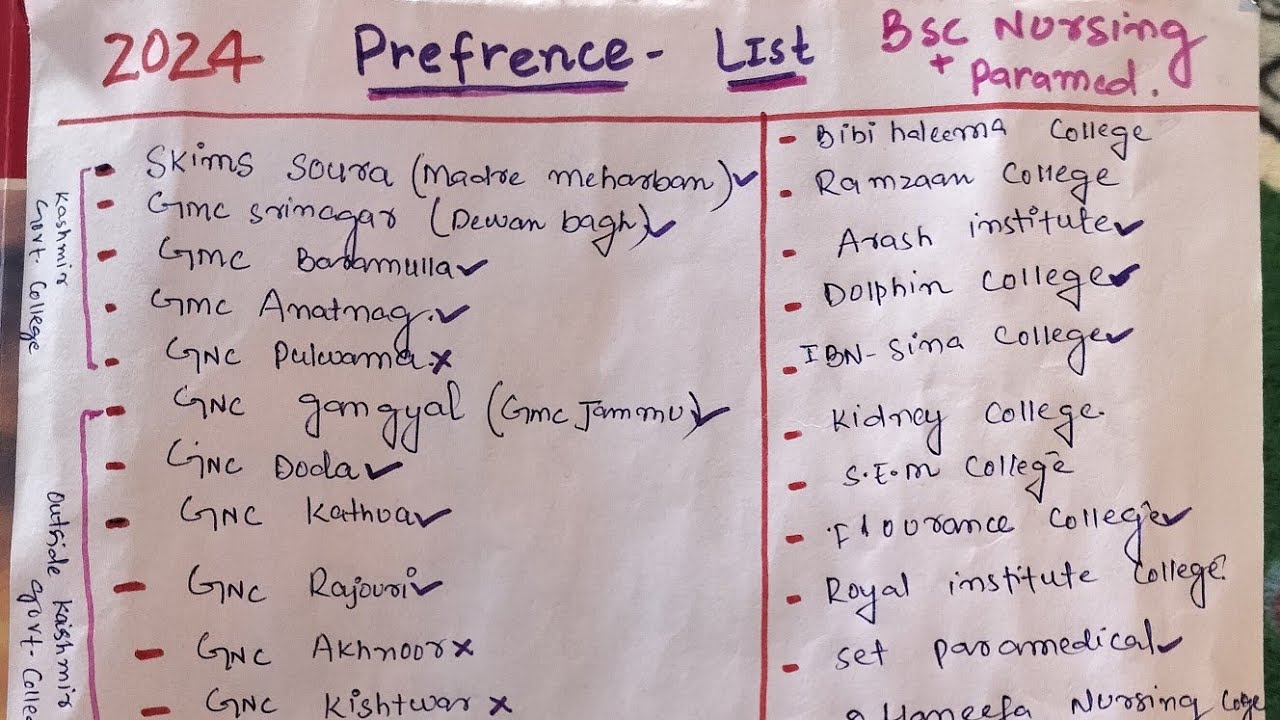 2024 Prefrence - List BSC Nursing
+ Paramed.
Kashmir
Govt. College
- Skims Soura (Madre meharban) ✓
- Gmc Srinagar (Dewan bagh) ✓
- Gmc Baramulla ✓
- Gmc Anatnag. ✓
- GNC Pulwama. x
Outside Kashmir
govt. Colle
- GNC gangyal (Gmc Jammu) ✓
- GNC Doda ✓
- GNC Kathua ✓
- GNC Rajouri ✓
- GNC Akhnoor x
- GNC Kishtwar x
- Bibi haleema College
- Ramzaan College
- Arash institute ✓
- Dolphin College ✓
- IBN-Sina College ✓
- Kidney College.
- S.E.M College
- Flourance College ✓
- Royal institute College
- set paramedical ✓
Haneefa Nursing